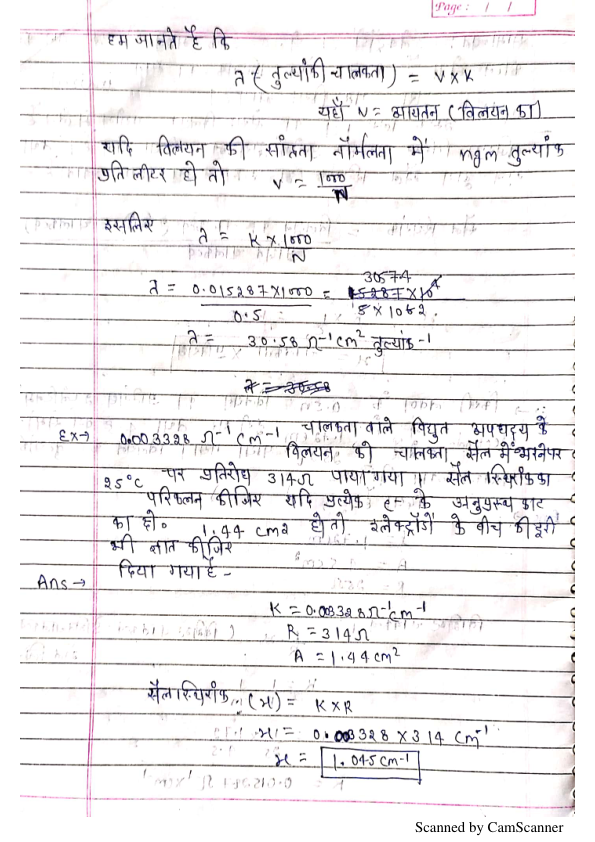 Page: / /
हम जानते है कि
λ (तुल्यांकी चालकता) = V x K
यहाँ V = आयतन (विलयन का)
यदि विलयन की सांद्रता नॉर्मलता में ngm तुल्यांक
प्रति लीटर हो तो V = 1000/N
इसलिए
λ = K x 1000/N
λ = 0.015287 x 1000/0.5 =
λ = 30.58 Ω-1 cm2 तुल्यांक-1
Ex→ 0.003328 Ω-1 cm-1 चालकता वाले विद्युत अपघट्य के
विलयन को चालकता सैल में भरनेपर
25°C पर प्रतिरोध 314Ω पाया गया सैल स्थिरांक का
परिकलन कीजिए यदि प्रत्येक e- के अनुप्रस्थ काट
का हो० 1.44 cm2 हो तो इलेक्ट्रॉडो के बीच की दूरी
भी ज्ञात कीजिए
Ans→ दिया गया है -
K = 0.003328 Ω-1 cm-1
R = 314Ω
A = 1.44 cm2
सैल स्थिरांक = K x R
= 0.003328 x 314 cm-1
= 1.045 cm-1
Scanned by CamScanner